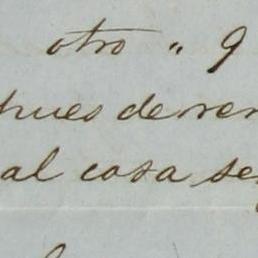 otro " 9
pues de ren
al cosa se